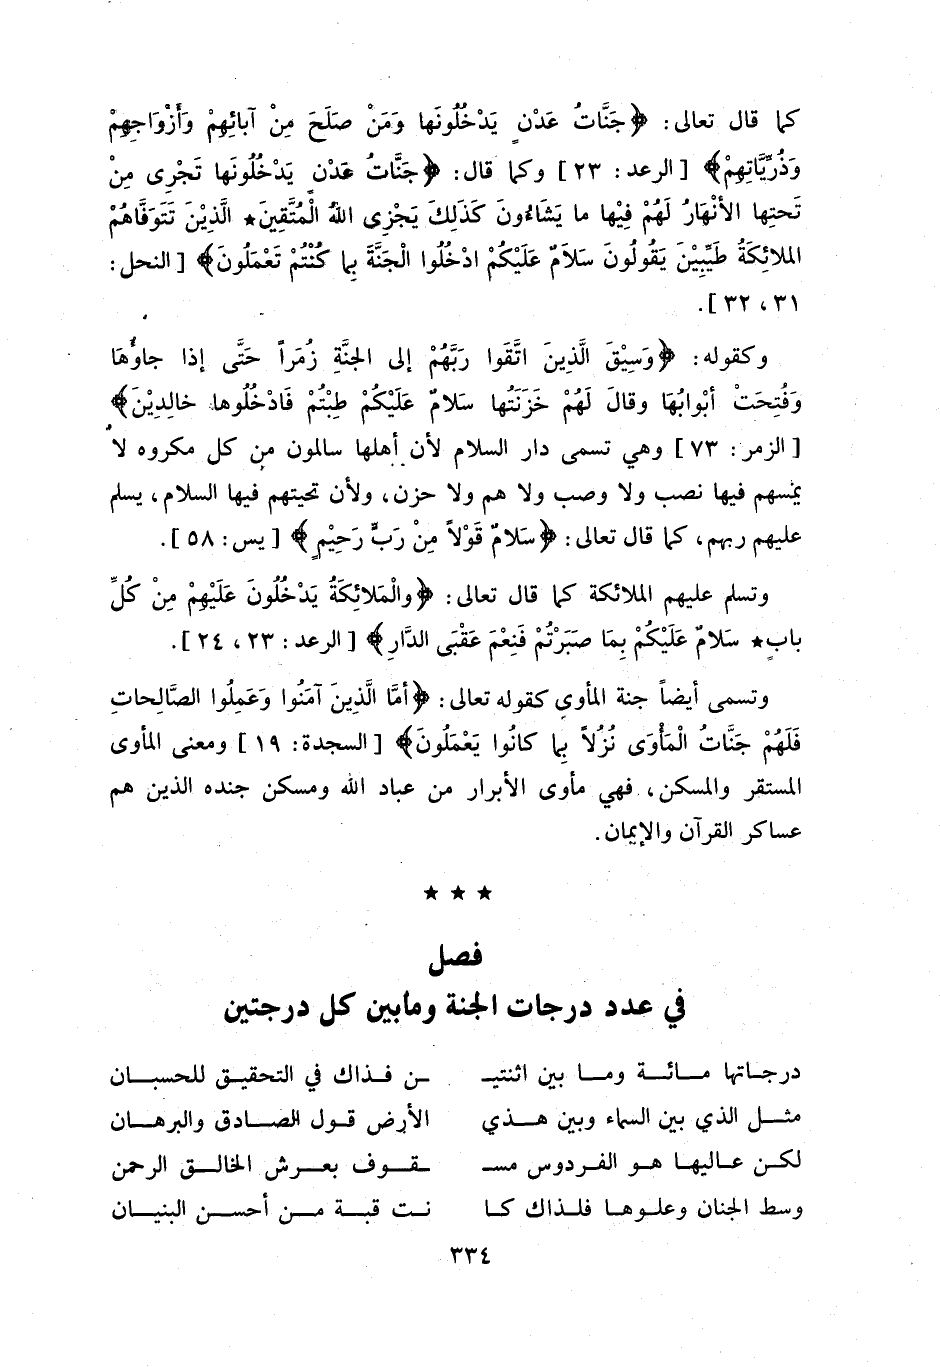 كما قال تعالى: ﴿جَنَّاتُ عَدْنٍ يَدْخُلُونَها وَمَنْ صَلَحَ مِنْ آبائِهِمْ وَأَزْوَاجِهِمْ
وَذُرِّيَّاتِهِمْ﴾ [ الرعد: ٢٣ ] وكما قال: ﴿جَنَّاتُ عَدْنٍ يَدْخُلُونَها تَجْرِى مِنْ
تَحتِها الأنْهَارُ لَهُمْ فِيْها ما يَشَاءُونَ كَذَلِكَ يَجْزِى اللهُ الْمُتَّقِينَ★ الَّذِيْنَ تَتَوَفَّاهُمُ
الملائِكَةُ طَيِّبِيْنَ يَقُولُونَ سَلاَمٌ عَلَيْكُمْ ادْخُلُوا الْجَنَّةَ بِما كُنْتُمْ تَعْمَلُونَ﴾ [ النحل:
٣١، ٣٢ ].
وكقوله: ﴿وَسِيْقَ الَّذِينَ اتَّقَوا رَبَّهُمْ إلى الجنَّةِ زُمَراً حَتَّى إذا جاؤُهَا
وَفُتِحَتْ أبْوابُهَا وقالَ لَهُمْ خَزَنَتُها سَلامٌ عَلَيْكُمْ طِبْتُمْ فَادْخُلُوها خالِدِيْنَ﴾
[ الزمر: ٧٣ ] وهي تسمى دار السلام لأن أهلها سالمون من كل مكروه لا
يمسهم فيها نصب ولا وصب ولا هم ولا حزن، ولأن تحيتهم فيها السلام، يسلم
عليهم ربهم، كما قال تعالى: ﴿سَلامٌ قَوْلاً مِنْ رَبٍّ رَحِيْمٍ﴾ [ يس: ٥٨ ].
وتسلم عليهم الملائكة كما قال تعالى: ﴿والْمَلائِكَةُ يَدْخُلُونَ عَلَيْهِمْ مِنْ كُلِّ
بابٍ★ سَلامٌ عَلَيْكُمْ بِمَا صَبَرْتُمْ فَنِعْمَ عَقْبَى الدَّارِ﴾ [ الرعد: ٢٣، ٢٤ ].
وتسمى أيضاً جنة المأوى كقوله تعالى: ﴿أمَّا الَّذِينَ آمَنُوا وَعَمِلُوا الصَّالِحاتِ
فَلَهُمْ جَنَّاتُ الْمَأْوَى نُزُلاً بِما كانُوا يَعْمَلُونَ﴾ [ السجدة: ١٩ ] ومعنى المأوى
المستقر والمسكن، فهي مأوى الأبرار من عباد الله ومسكن جنده الذين هم
عساكر القرآن والإيمان.
★ ★ ★
فصل
في عدد درجات الجنة ومابين كل درجتين
درجـاتها مـائـة ومـا بين اثنتيـ ـن فـذاك في التحقيـق للحسبـان
مثـل الذي بين السماء وبين هـذي الأرض قـول الصـادق والبرهـان
لكـن عـاليهـا هـو الفـردوس مسـ ـقـوف بعـرش الخالـق الرحمن
وسط الجنان وعلـوهـا فلـذاك كـا نـت قبـة مـن أحسـن البنيـان
٣٣٤